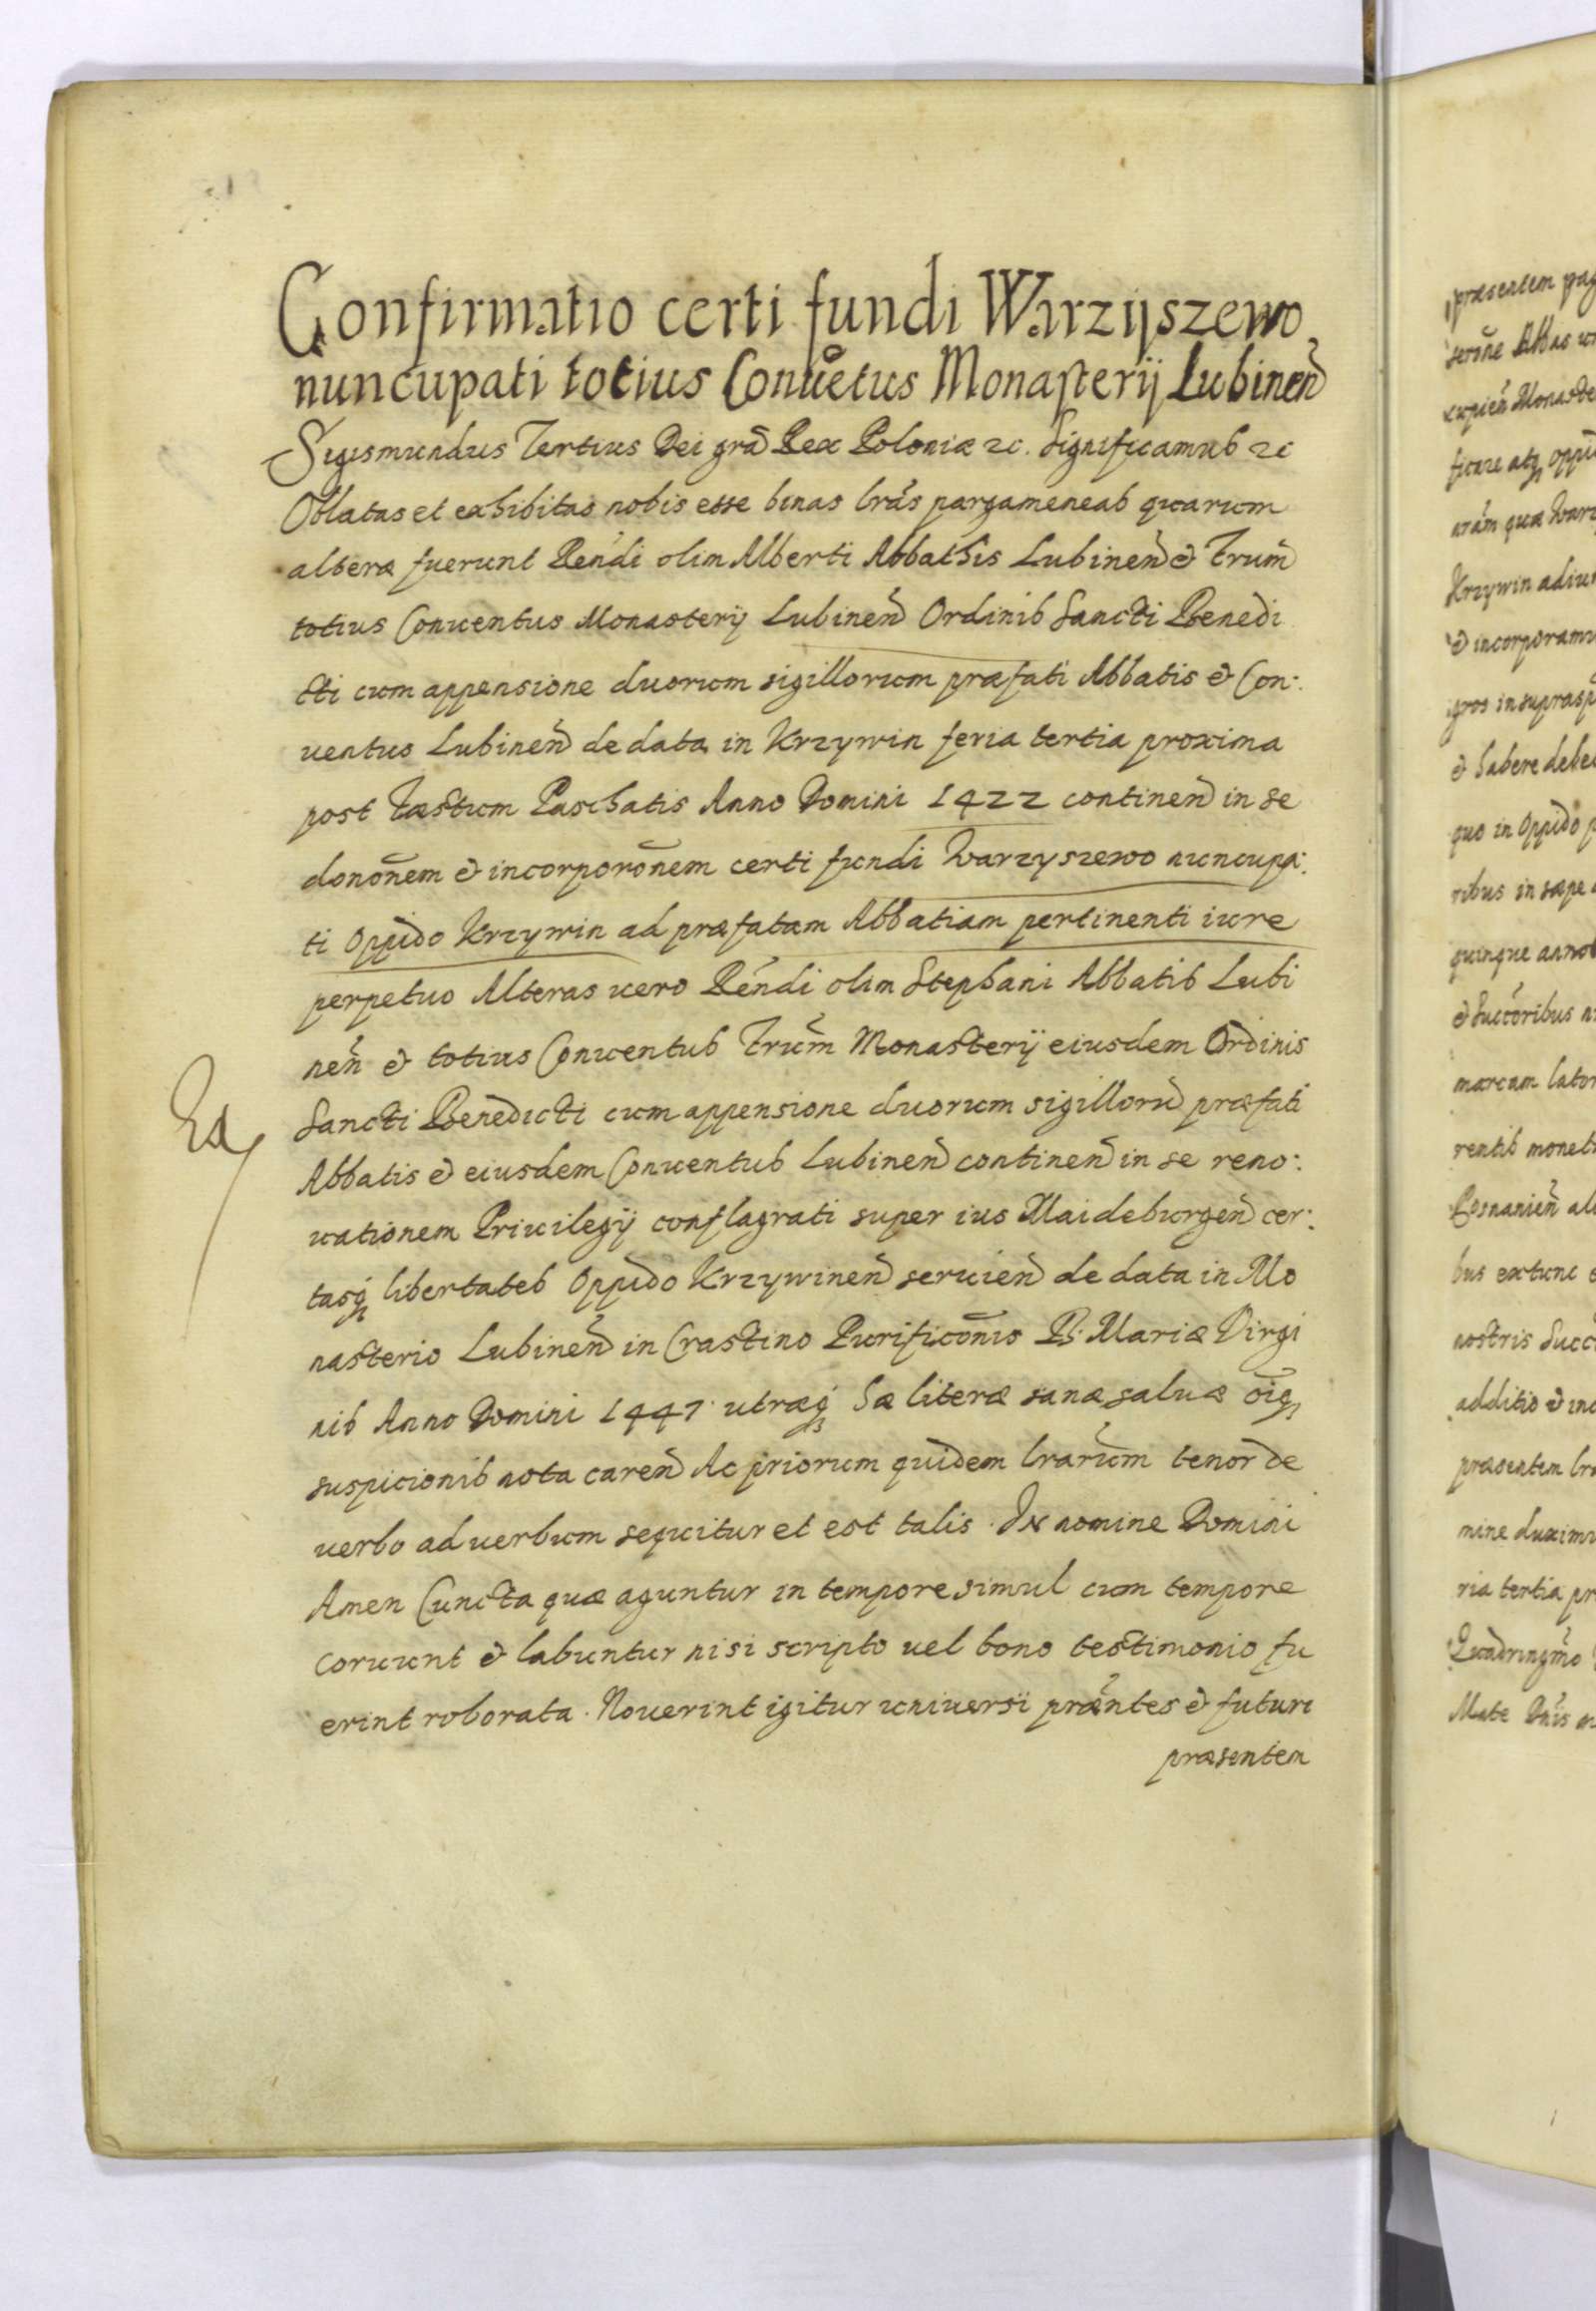 Confirmatio certi fundi Warzijszewo
nuncupati totius Conuētus Monasterij Lubineñ
Sigismundus Tertius Dei grã Rex Poloniæ &c. Significamus &c
Oblatas et exhibitas nobis esse binas lrãs pargameneas quarum
alteræ fuerunt Rẽndi olim Alberti Abbathis Lubineñ & Frum̃
totius Conuentus Monasterij Lubineñ Ordinis Sancti Benedi
cti cum appensione duorum sigillorum præfati Abbatis & Con:
uentus Lubineñ de data in Krzywin feria tertia proxima
post Fæstum Paschatis Anno Domini 1422 contineñ in se
donoñem & incorporoñem certi fundi Warzyszewo nuncupa:
ti Oppido Krzywin ad præfatam Abbatiam pertinenti iure
perpetuo Alteras uero Rẽndi olim Stephani Abbatis Lubi
neñ & totius Conuentus Frum̃ Monasterij eiusdem Ordinis
Sancti Benedicti cum appensione duorum sigillorũ præfati
Abbatis & eiusdem Conuentus Lubineñ contineñ in se reno:
uationem Priuilegij conflagrati super ius Maideburgeñ cer:
tasq3 libertates Oppido Krzywineñ seruieñ de data in Mo
nasterio Lubineñ in Crastino Purificoñis B: Mariæ Virgi
nis Anno Domini 1447 utræq3 hæ literæ sanæ saluæ oĩq3
suspicionis nota careñ Ac priorum quidem lrarum̃ tenor de
uerbo ad uerbum sequitur et est talis. In nomine Domini
Amen Cuncta quæ aguntur in tempore simul cum tempore
coruunt & labuntur nisi scripto uel bono testimonio fu
erint roborata. Nouerint igitur uniuersi præ̃ntes & futuri
præsentem
præsentem
Abbas
Monaste
ficare atq3
Krzywin
& incorporamu
& habere debe
quo in Oppido
quinque annos
& Succoribus
marcam
Posnanieñ
bus extunc
nostris
additio &
præsentem
mine duximu
ria tertia